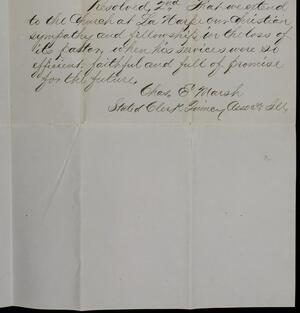 Resolved, 2nd That we extend
to the Church at La Harpe our Christian
sympathy and fellowship in the loss of
its pastor, when his services were so
efficient, faithful and full of promise
for the future.
Chas. E. Marsh
Stated Clerk Quincy Assoc'n Ill.